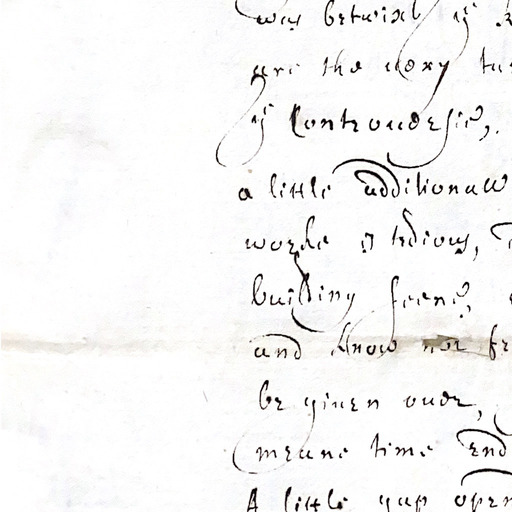 was betwixt yͤ
are the uery
yͤ Controuersie,
a little additionall
worke is tedious,
building seene,
and know not
be giuen ouer,
meane time end
A little gap open